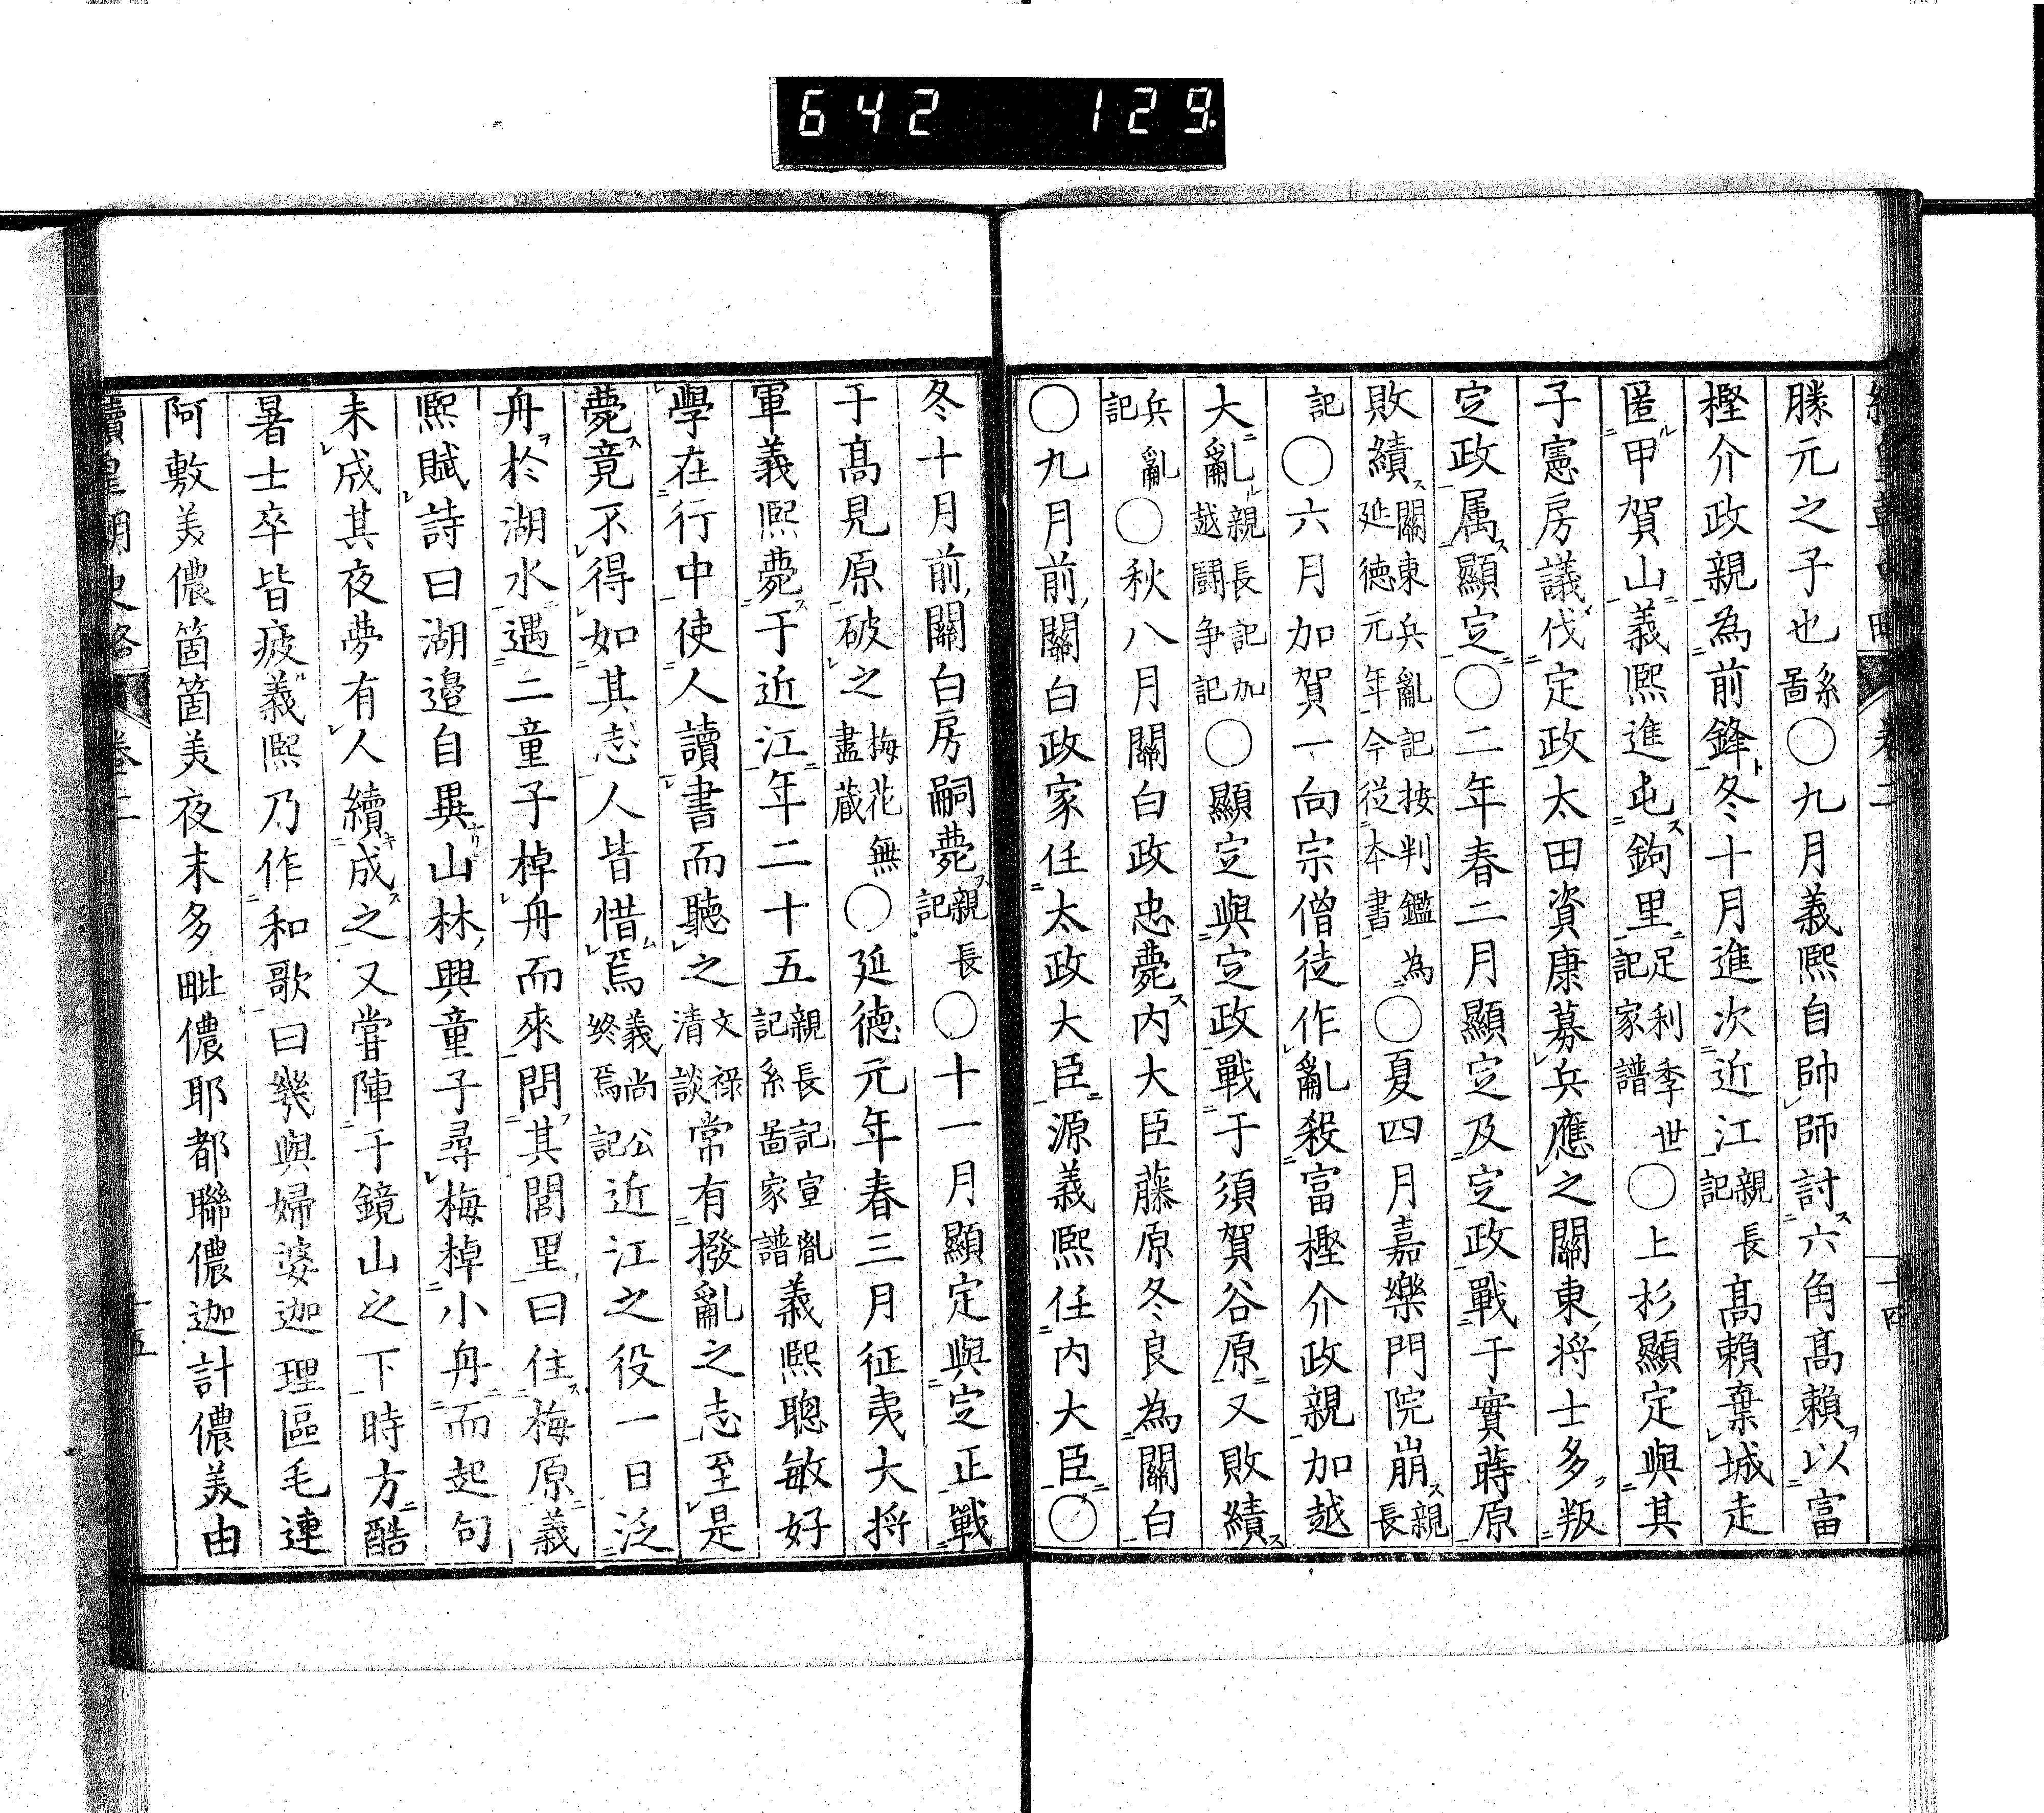 642 129
勝元之子也系圖○九月義熙自帥師討六角高頼以富
樫介政親為前鋒冬十月進次近江親長記高頼棄城走
匿甲賀山義熙進屯鉤里足利季世記家譜○上杉顯定與其
子憲房議伐定政太田資康募兵應之關東將士多叛
定政属顯定○二年春二月顯定及定政戰于實蒔原
敗績關東兵亂記按判鑑為延徳元年今從本書○夏四月嘉樂門院崩親長
記○六月加賀一向宗僧徒作亂殺富樫介政親加越
大亂親長記加越闘争記○顯定與定政戰于須賀谷原又敗績
兵亂記○秋八月關白政忠薨内大臣藤原冬良為關白
○九月前關白政家任太政大臣源義熙任内大臣○
冬十月前關白房嗣薨親長記○十一月顯定與定正戰
于高見原破之梅花無盡蔵○延徳元年春三月征夷大将
軍義熙薨于近江年二十五親長記宣胤記系圖家譜義熙聰敏好
學在行中使人讀書而聽之文禄清談常有撥亂之志至是
薨竟不得如其志人皆惜焉義尚公終焉記近江之役一日泛
舟於湖水遇二童子棹舟而來問其閭里曰住梅原義
熙賦詩曰湖邉自異山林興童子尋梅棹小舟而起句
未成其夜夢有人續成之又嘗陣于鏡山之下時方酷
暑士卒皆疲義熙乃作和歌曰幾與婦婆迦理區毛連
阿敷美儂箇箇美夜末多毗儂耶都聯儂迦計儂美由
續皇朝史略 卷二 十五